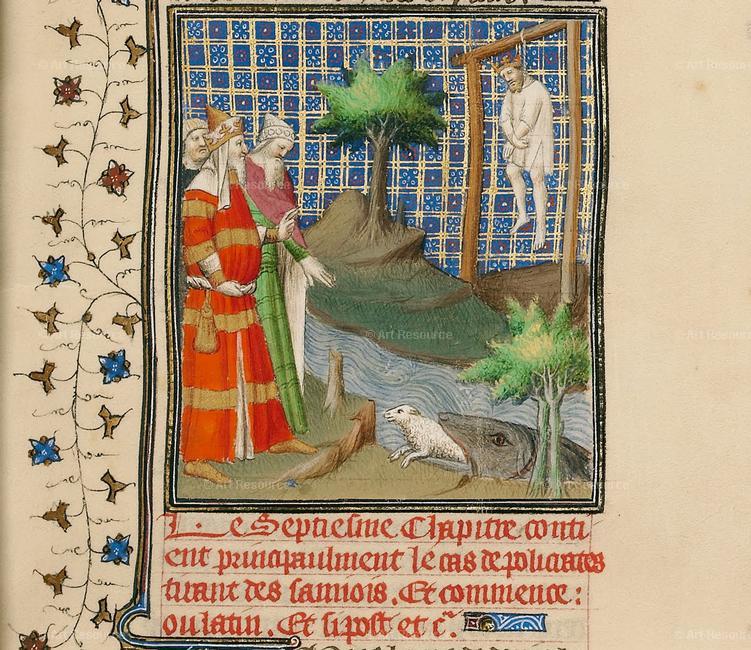 L. e Septiesme Chapitre conti
ent principaulment le cas de policrates
tirant des samiois. Et commence:
ou latin. Et si post et c.
© Art Resource